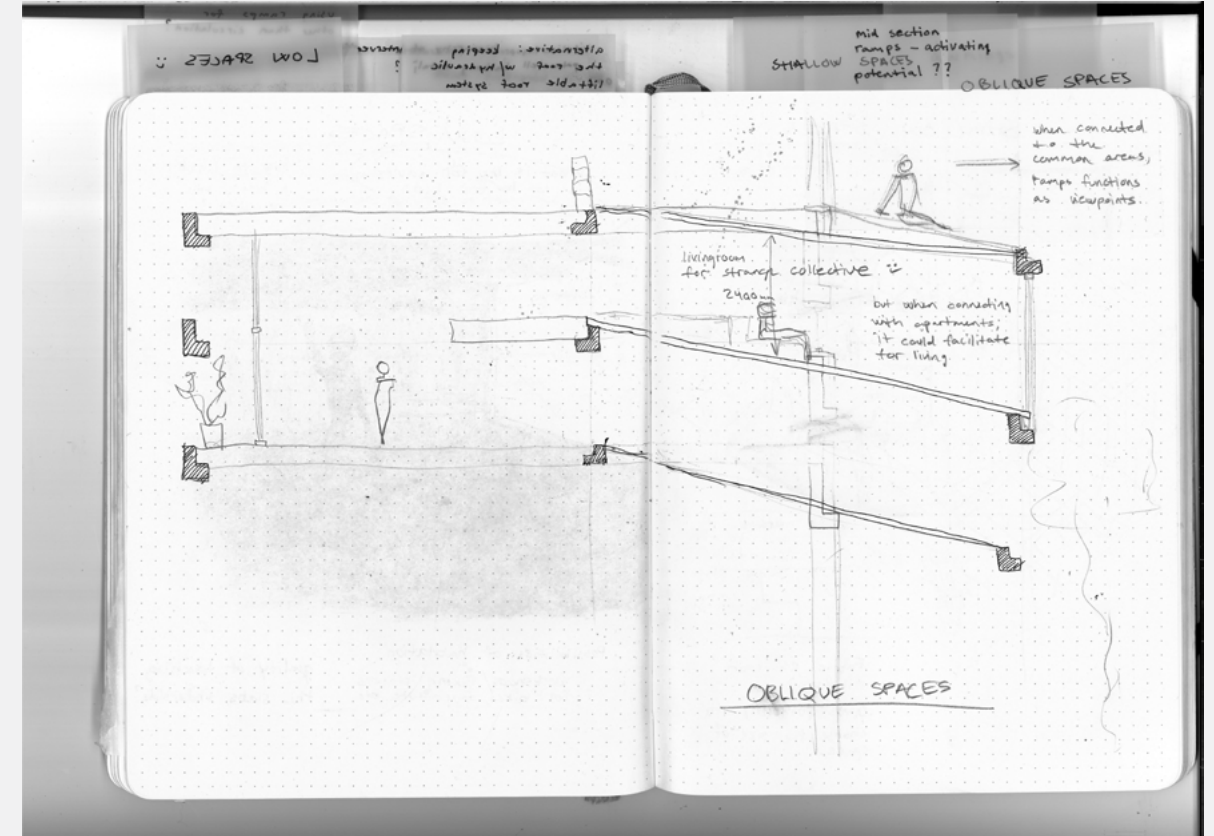 LOW SPACES :)
alternative: keeping
the roof w/ hydraulic ?
liftable roof system
mid section
ramps – activating
SHALLOW SPACES
potential ??
OBLIQUE SPACES
when connected
to the
common areas,
ramps functions
as viewpoints.
livingroom
for strange collective :)
2400mm
but when connecting
with apartments,
it could facilitate
for living
OBLIQUE SPACES